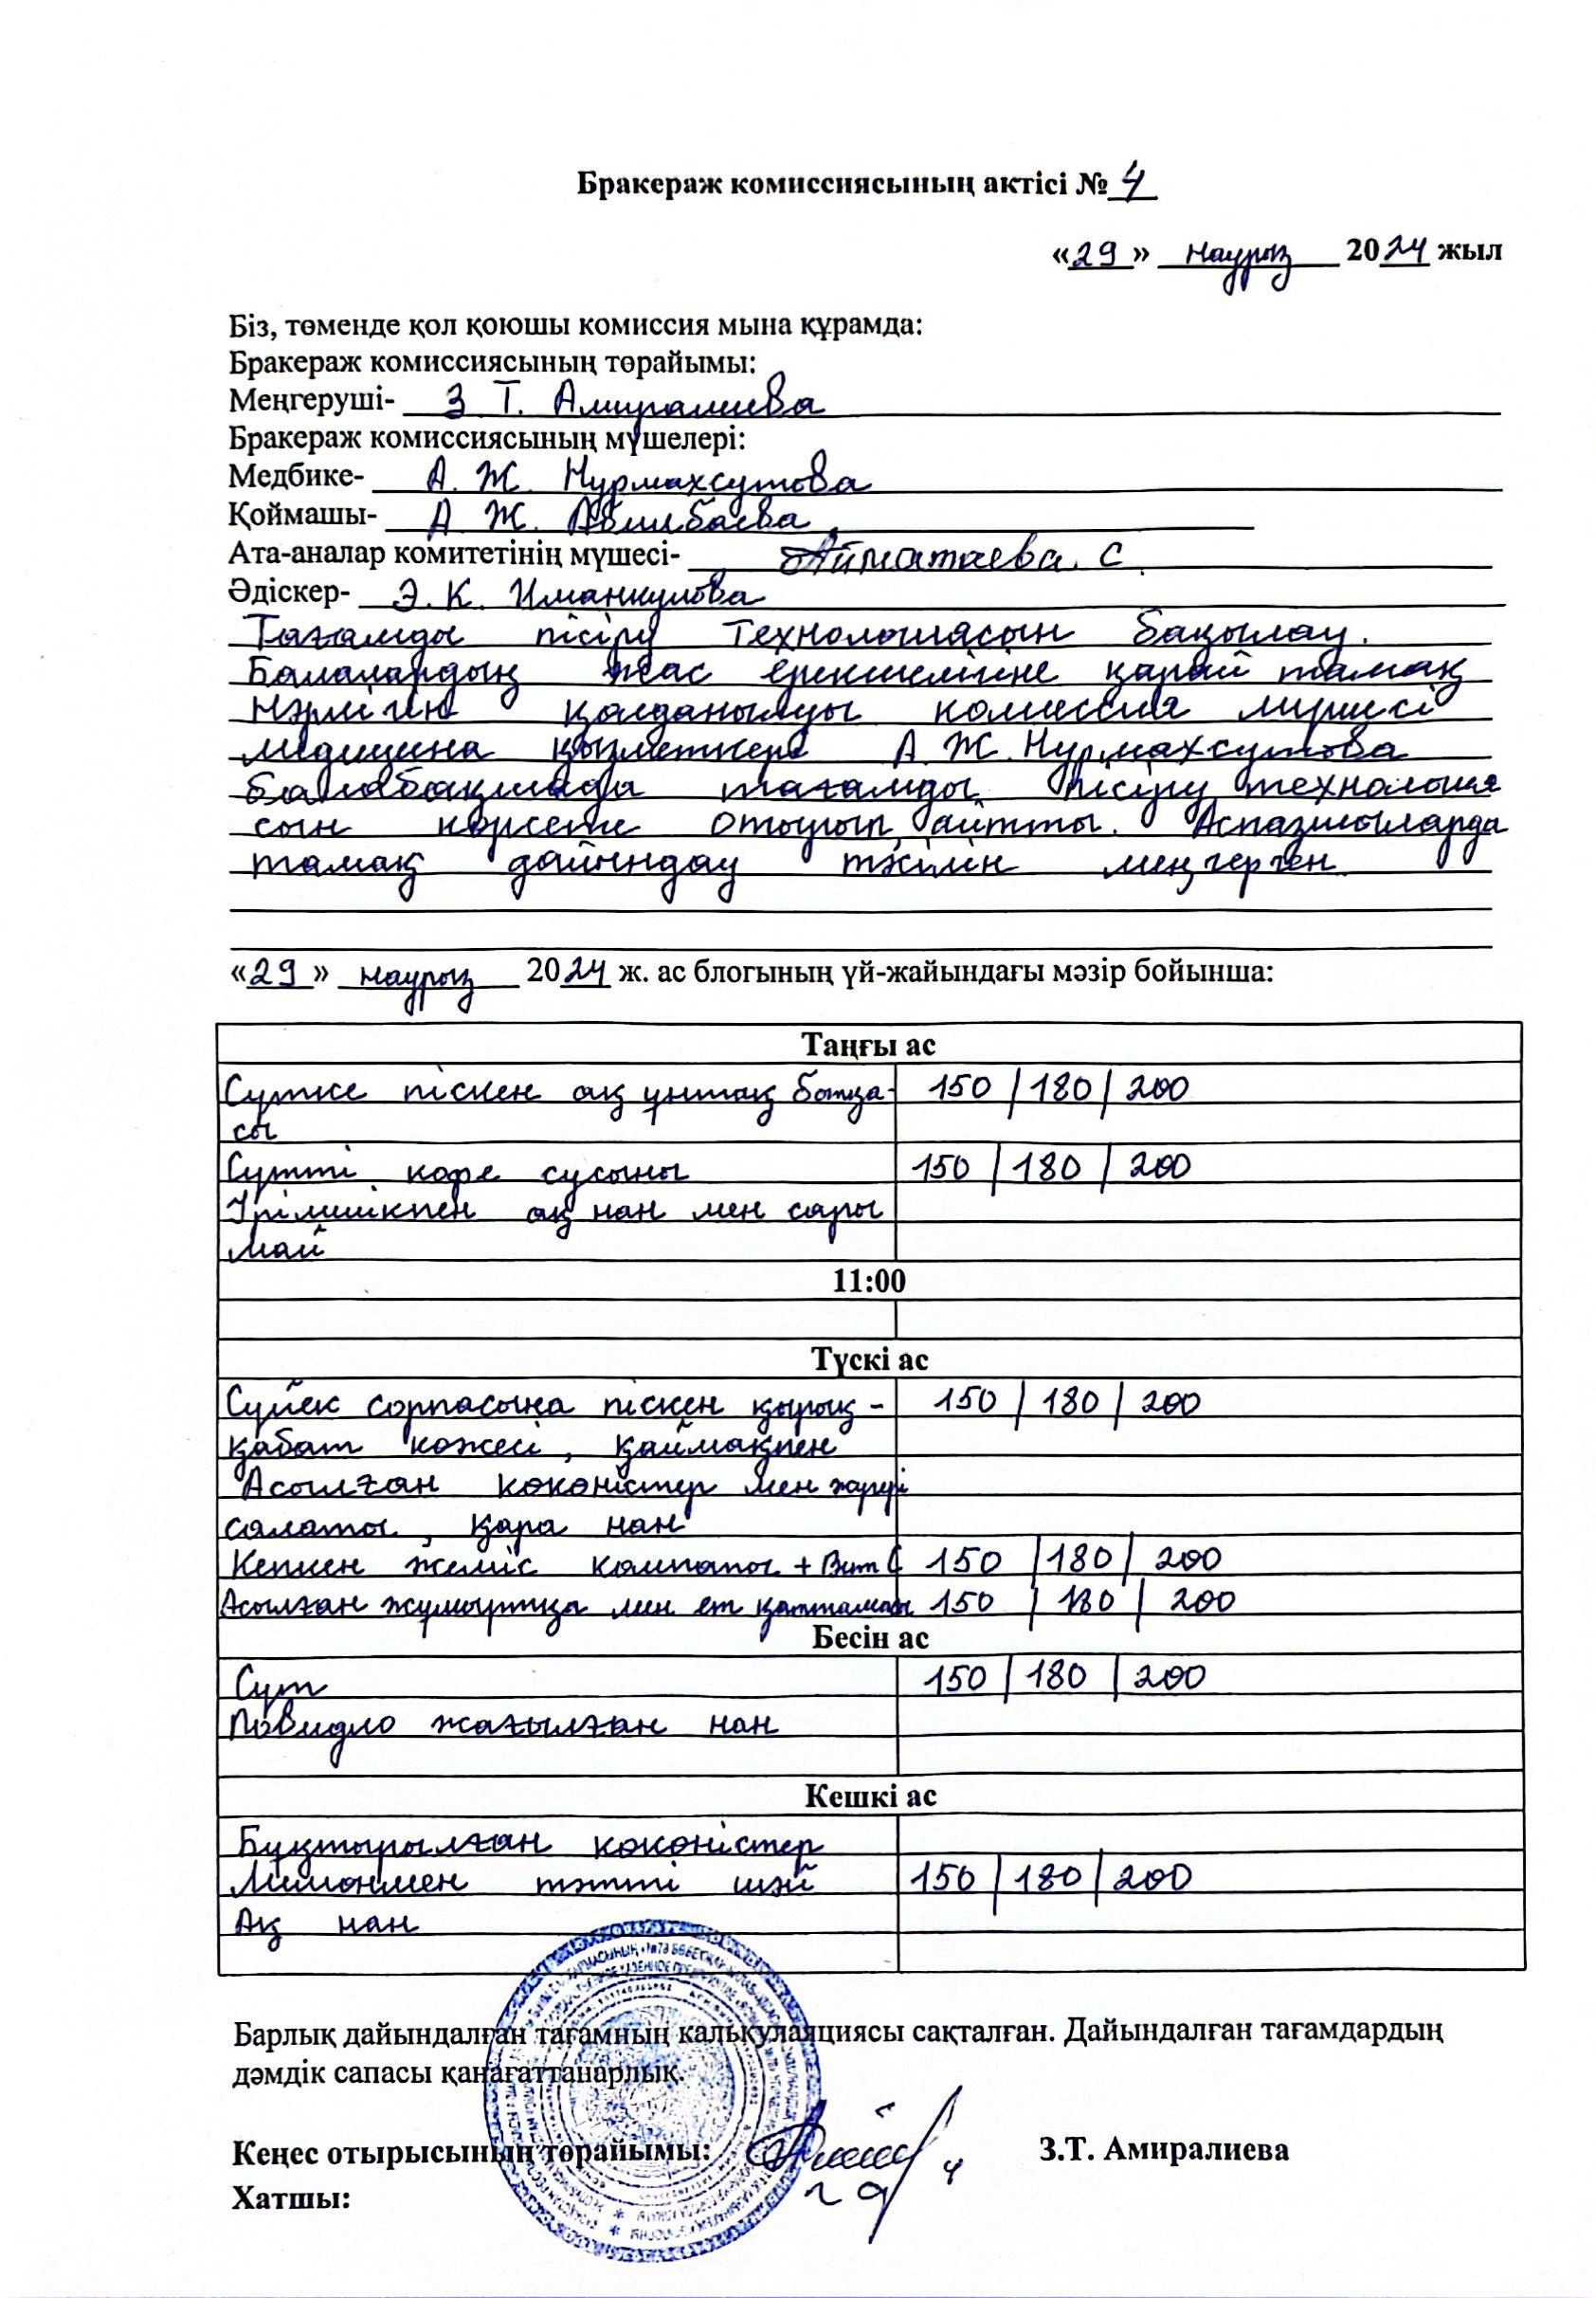 Бракераж комиссиясының актісі № 4
«29» наурыз 2024 жыл
Біз, төменде қол қоюшы комиссия мына құрамда:
Бракераж комиссиясының төрайымы:
Меңгеруші- З Т. Амиралиева
Бракераж комиссиясының мүшелері:
Медбике- А. Ж. Нурмахсутова
Қоймашы- А Ж. Абилбаева
Ата-аналар комитетінің мүшесі- Айматаева. С
Әдіскер- Э. К. Иманкулова
Тағамды пісіру технологиясын бақылау.
Балалардың жас ерекшелігіне қарай тамақ
нәрлігін қолданылуы комиссия мүшесі
медицина қызметкері А. Ж. Нурмахсутова
балабақшада тағамды пісіру технология
сын көрсете отырып айтты. Аспазшыларда
тамақ дайындау тәсілін меңгерген
«29» наурыз 2024 ж. ас блогының үй-жайындағы мәзір бойынша:
Таңғы ас
Сүтке піскен ақ ұнтақ ботқа- 150 | 180 | 200
сы
Сүтті кофе сусыны 150 | 180 | 200
Ірімшікпен ақ нан мен сары
май
11:00
Түскі ас
Сүйек сорпасына піскен қырық- 150 | 180 | 200
қабат көжесі, қаймақпен
Асылған көкөністер мен
салаты, қара нан
Кепкен жеміс компоты + Вит С 150 | 180 | 200
Асылған жұмыртқа мен ет қаттамасы 150 | 180 | 200
Бесін ас
Сүт 150 | 180 | 200
Повидло жағылған нан
Кешкі ас
Бұқтырылған көкөністер
Лимонмен тәтті шәй 150 | 180 | 200
Ақ нан
Барлық дайындалған тағамның калькуляциясы сақталған. Дайындалған тағамдардың
дәмдік сапасы қанағаттанарлық.
Кеңес отырысының төрайымы: З.Т. Амиралиева
Хатшы: